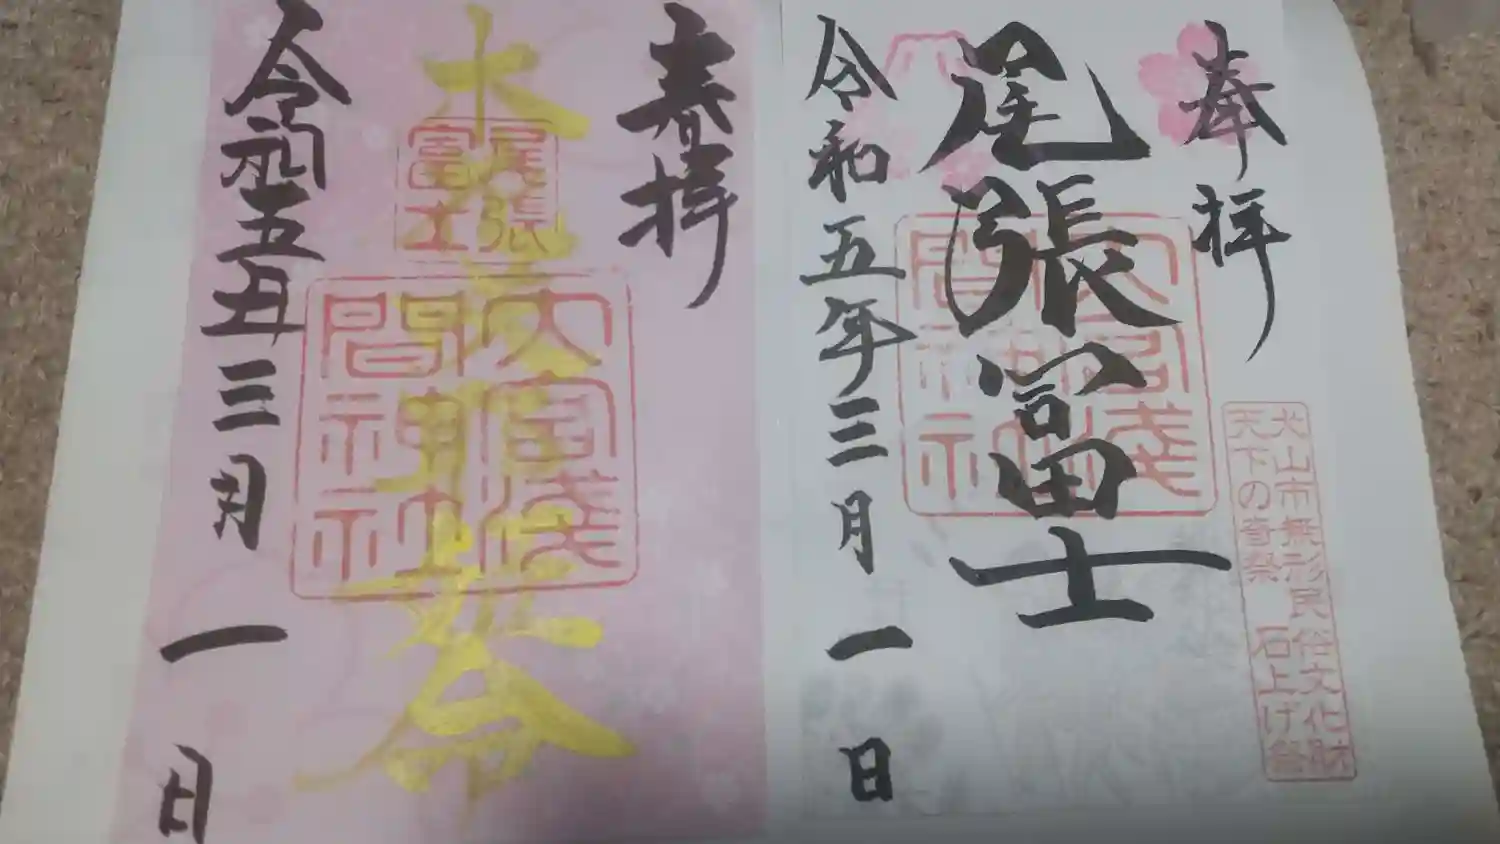 奉拝
尾張冨士
大宮淺
間神社
令和五年三月一日
犬山市無形民俗文化財
天下の奇祭 石上げ祭
春拝
木
命
尾張
富士
大宮淺
間神社
令和五年三月一日